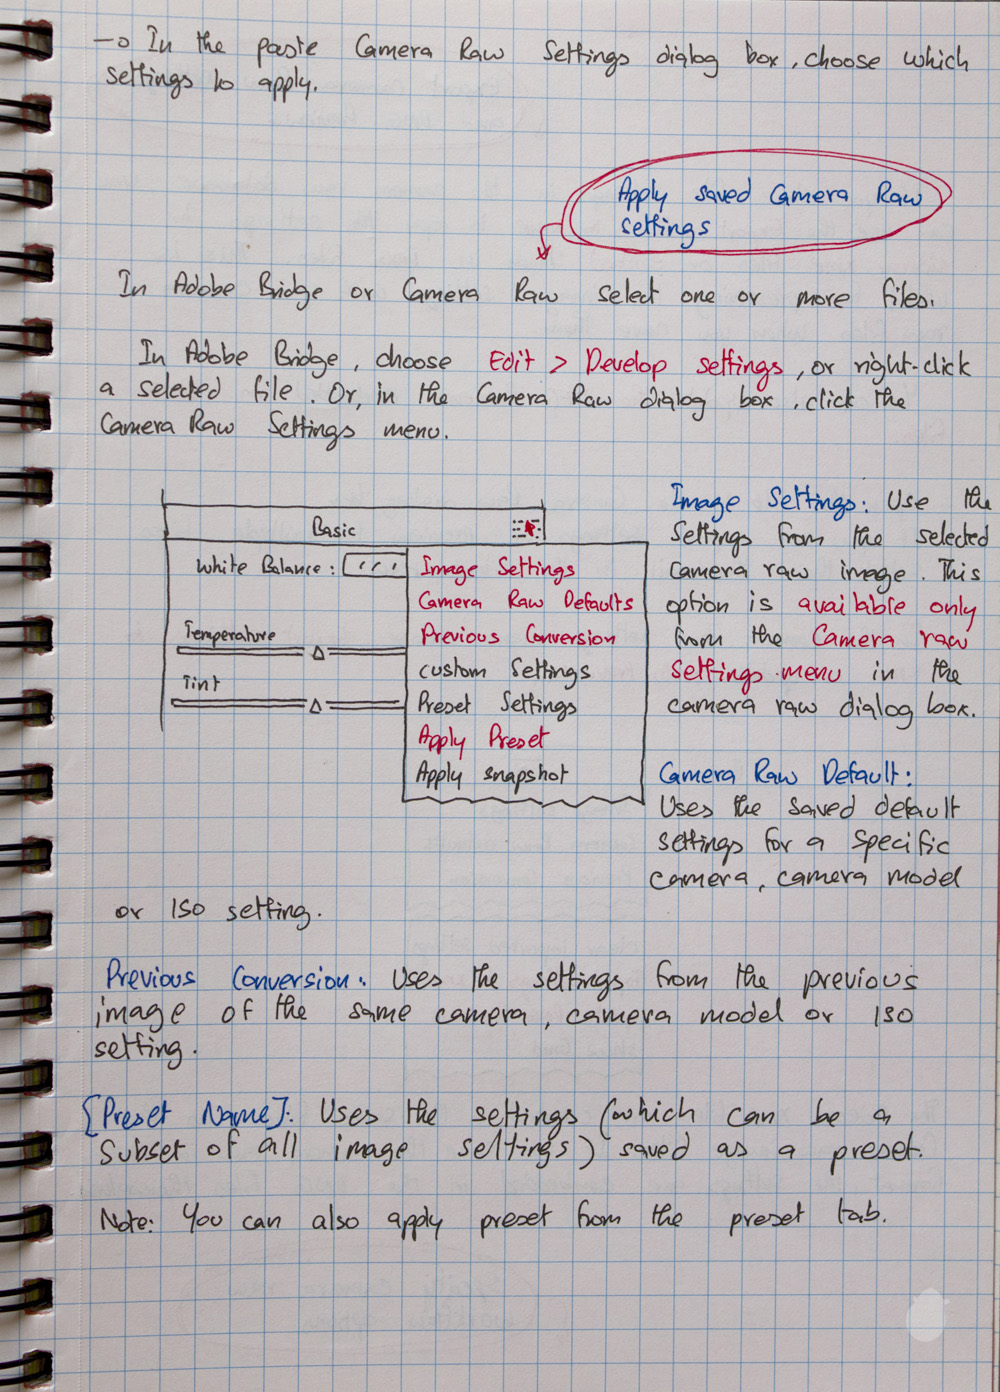 → In the paste Camera Raw Settings dialog box, choose which
settings to apply.
Apply saved Camera Raw
settings
In Adobe Bridge or Camera Raw select one or more files.
In Adobe Bridge, choose Edit > Develop settings, or right-click
a selected file. Or, in the Camera Raw dialog box, click the
Camera Raw Settings menu.
Basic
White Balance:
Temperature
Tint
Image Settings
Camera Raw Defaults
Previous Conversion
custom Settings
Preset Settings
Apply Preset
Apply snapshot
Image Settings: Use the
Settings from the selected
camera raw image. This
option is available only
from the Camera raw
settings menu in the
camera raw dialog box.
Camera Raw Default:
Uses the saved default
settings for a specific
camera, camera model
or ISO setting.
Previous Conversion: Uses the settings from the previous
image of the same camera, camera model or ISO
setting.
[Preset Name]: Uses the settings (which can be a
Subset of all image settings) saved as a preset.
Note: You can also apply preset from the preset tab.